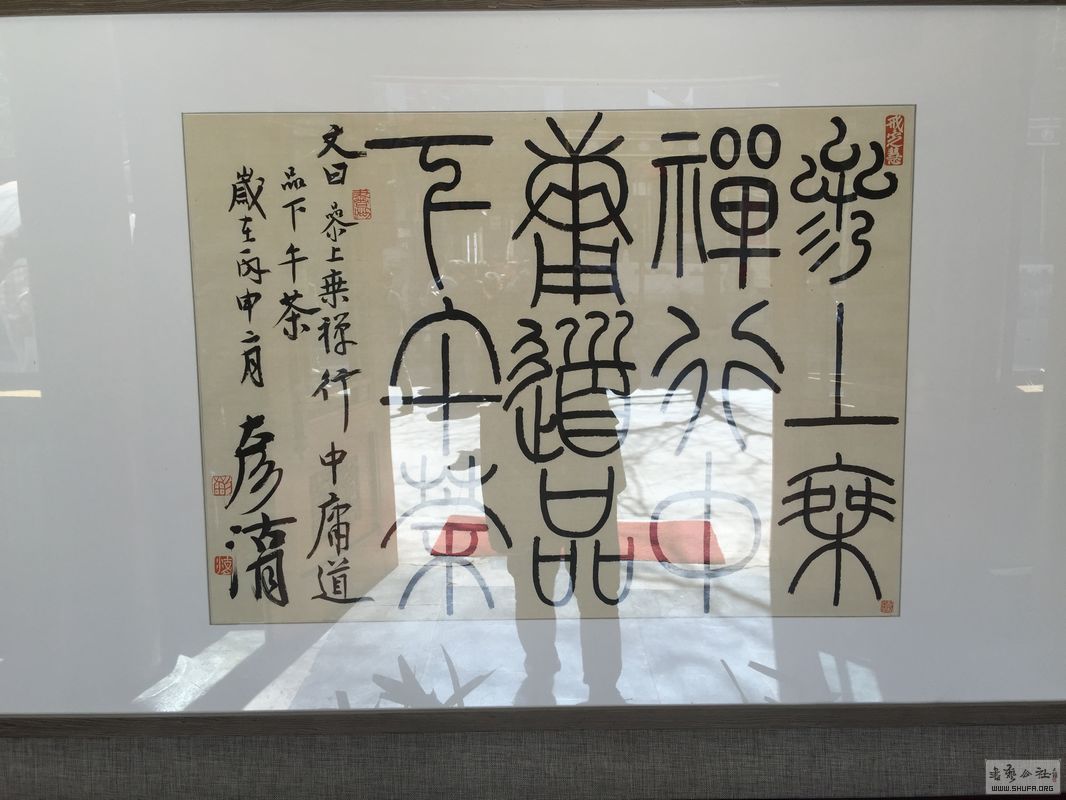 參上乗
禪行中
庸道品
下午茶
文曰 參上乗禅行中庸道
品下午茶
歲在丙申二月 彦湑
戒定慧
書藝公社
WWW.SHUFA.ORG